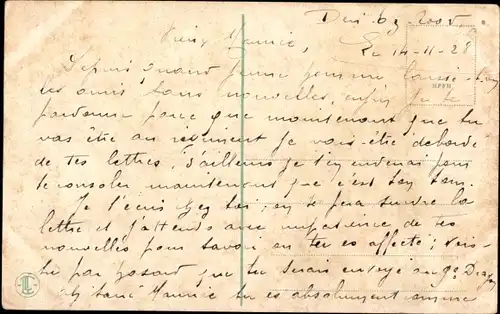 Vieux Maurice,
Le 14-11-28
Depuis quand jeune homme laisse-t-on
les amis sans nouvelles, enfin je te
pardonne parce que maintenant que tu
vas être au régiment je vais être débordé
de tes lettres; d'ailleurs je t'en enverrai pour
te consoler maintenant que c'est ton tour.
Je t'écris chez toi, on te fera suivre la
lettre et j'attends avec impatience de tes
nouvelles pour savoir où tu es affecté;
par hasard que tu serais envoyé au 9e
Maurice tu es absolument comme